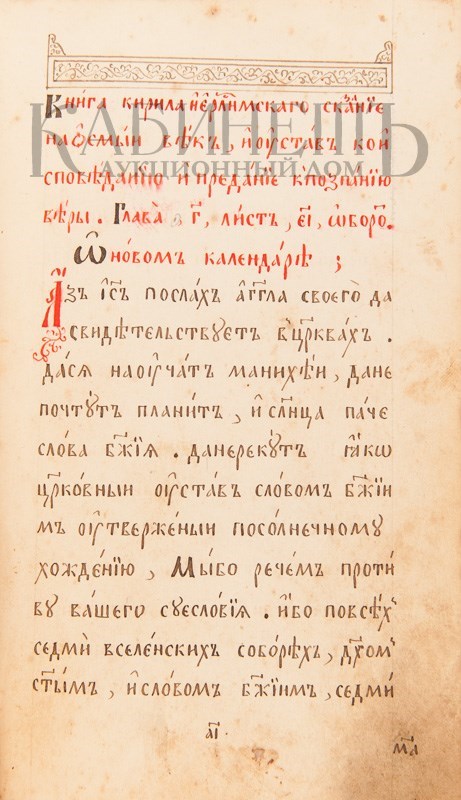 Книга кирила іерⷭ҇лимскаго сказаніе
на ѻсмыи вѣкъ, и҆ ᲂу҆ставъ кой
споведанїю и҆ преданїе к̾познанїю
вѣры. Глава̀ , г҃, ли́стъ, єі҃, ѿборо.
Ѡ҆ новомъ календа́рѣ ;
КАБИНЕТЪ
АУКЦИОННЫЙ ДОМ
А҆́зъ і҆с҃ъ посла́хъ а҆́гг҃ла своего̀ да
свидѣ́тельствꙋетъ въ цр҃ква́хъ .
да сѧ наᲂу҆ча́тъ манихѣ́и, да не
почтꙋ́тъ плани́тъ, и҆ сл҃нца па́че
сло́ва бж҃їѧ . да не рекꙋ́тъ ꙗ҆́кѡ
цр҃ко́вныи ᲂу҆ста́въ сло́вомъ бж҃їи
мъ ᲂу҆тверже́ныи посо́лнечномꙋ
хожде́нїю, Мы́ бо рече́мъ проти́
вꙋ ва́шего сꙋесло́вїѧ . и҆́бо по всѣ́хъ
седмѝ вселе́нскихъ собо́рѣхъ, дх҃ом
ст҃ы́мъ, и҆ сло́вомъ бж҃їимъ, седми́
а҃і.